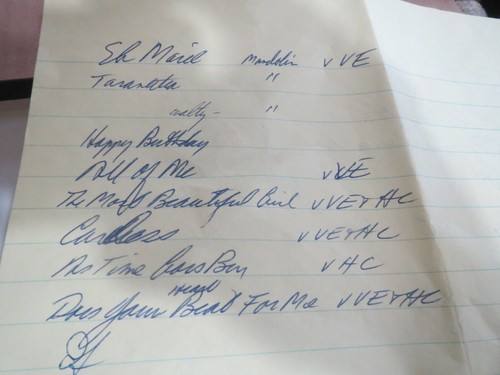 Eh Marie Mandolin v VE
Tarantella "
waltz - "
Happy Birthday
All of Me v VE
The Most Beautiful Girl v VE+HC
Careless v VE+HC
As Time Goes By v HC
Does Your Heart Beat For Me v VE+HC